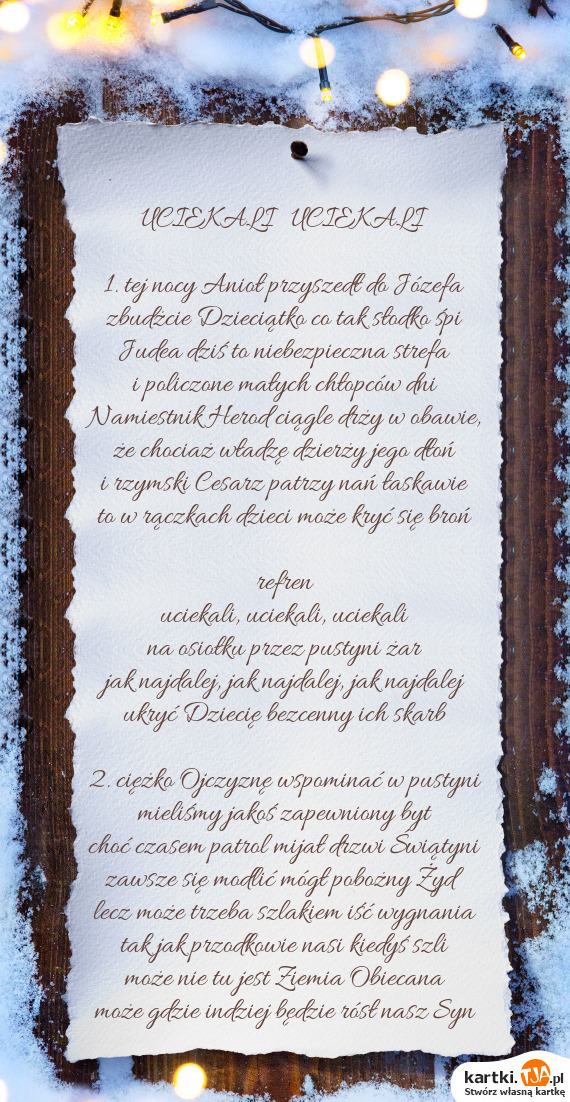 UCIEKALI UCIEKALI
1. tej nocy Anioł przyszedł do Józefa
zbudźcie Dzieciątko co tak słodko śpi
Judea dziś to niebezpieczna strefa
i policzone małych chłopców dni
Namiestnik Herod ciągle drży w obawie,
że chociaż władzę dzierży jego dłoń
i rzymski Cesarz patrzy nań łaskawie
to w rączkach dzieci może kryć się broń
refren
uciekali, uciekali, uciekali
na osiołku przez pustyni żar
jak najdalej, jak najdalej, jak najdalej
ukryć Dziecię bezcenny ich skarb
2. ciężko Ojczyznę wspominać w pustyni
mieliśmy jakoś zapewniony byt
choć czasem patrol mijał drzwi Świątyni
zawsze się modlić mógł pobożny Żyd
lecz może trzeba szlakiem iść wygnania
tak jak przodkowie nasi kiedyś szli
może nie tu jest Ziemia Obiecana
może gdzie indziej będzie rósł nasz Syn
kartki.TJA.pl
Stwórz własną kartkę